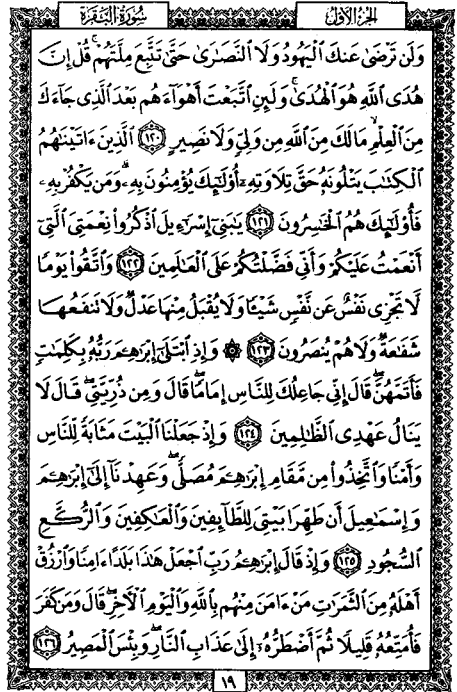 الجزء الأول سورة البقرة
وَلَن تَرْضَىٰ عَنكَ الْيَهُودُ وَلَا النَّصَارَىٰ حَتَّىٰ تَتَّبِعَ مِلَّتَهُمْ ۗ قُلْ إِنَّ
هُدَى اللَّهِ هُوَ الْهُدَىٰ ۗ وَلَئِنِ اتَّبَعْتَ أَهْوَاءَهُم بَعْدَ الَّذِي جَاءَكَ
مِنَ الْعِلْمِ ۙ مَا لَكَ مِنَ اللَّهِ مِن وَلِيٍّ وَلَا نَصِيرٍ ﴿١٢٠﴾ الَّذِينَ ءَاتَيْنَاهُمُ
الْكِتَابَ يَتْلُونَهُ حَقَّ تِلَاوَتِهِ أُولَٰئِكَ يُؤْمِنُونَ بِهِ ۗ وَمَن يَكْفُرْ بِهِ
فَأُولَٰئِكَ هُمُ الْخَاسِرُونَ ﴿١٢١﴾ يَابَنِي إِسْرَاءِيلَ اذْكُرُوا نِعْمَتِيَ الَّتِي
أَنْعَمْتُ عَلَيْكُمْ وَأَنِّي فَضَّلْتُكُمْ عَلَى الْعَالَمِينَ ﴿١٢٢﴾ وَاتَّقُوا يَوْمًا
لَّا تَجْزِي نَفْسٌ عَن نَّفْسٍ شَيْئًا وَلَا يُقْبَلُ مِنْهَا عَدْلٌ وَلَا تَنفَعُهَا
شَفَاعَةٌ وَلَا هُمْ يُنصَرُونَ ﴿١٢٣﴾ ۞ وَإِذِ ابْتَلَىٰ إِبْرَاهِيمَ رَبُّهُ بِكَلِمَاتٍ
فَأَتَمَّهُنَّ ۖ قَالَ إِنِّي جَاعِلُكَ لِلنَّاسِ إِمَامًا ۖ قَالَ وَمِن ذُرِّيَّتِي ۖ قَالَ لَا
يَنَالُ عَهْدِي الظَّالِمِينَ ﴿١٢٤﴾ وَإِذْ جَعَلْنَا الْبَيْتَ مَثَابَةً لِّلنَّاسِ
وَأَمْنًا وَاتَّخِذُوا مِن مَّقَامِ إِبْرَاهِيمَ مُصَلًّى ۖ وَعَهِدْنَا إِلَىٰ إِبْرَاهِيمَ
وَإِسْمَاعِيلَ أَن طَهِّرَا بَيْتِيَ لِلطَّائِفِينَ وَالْعَاكِفِينَ وَالرُّكَّعِ
السُّجُودِ ﴿١٢٥﴾ وَإِذْ قَالَ إِبْرَاهِيمُ رَبِّ اجْعَلْ هَٰذَا بَلَدًا ءَامِنًا وَارْزُقْ
أَهْلَهُ مِنَ الثَّمَرَاتِ مَنْ ءَامَنَ مِنْهُم بِاللَّهِ وَالْيَوْمِ الْآخِرِ ۖ قَالَ وَمَن كَفَرَ
فَأُمَتِّعُهُ قَلِيلًا ثُمَّ أَضْطَرُّهُ إِلَىٰ عَذَابِ النَّارِ ۖ وَبِئْسَ الْمَصِيرُ ﴿١٢٦﴾
١٩